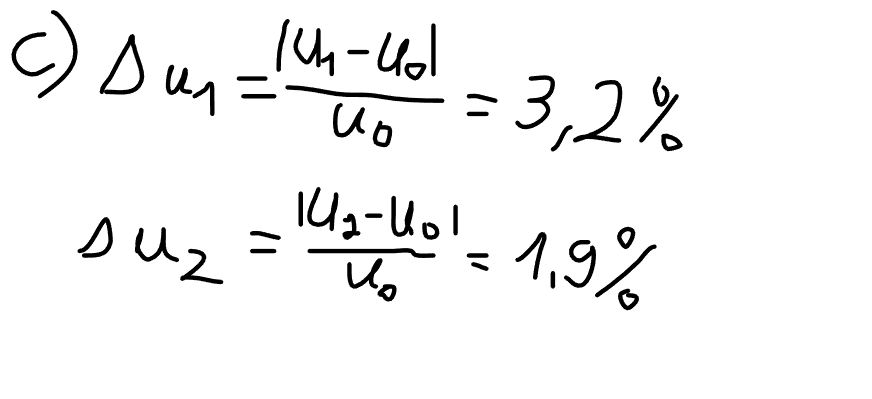 c) Δu₁ = |u₁ - u₀| / u₀ = 3,2%
Δu₂ = |u₂ - u₀| / u₀ = 1,9%